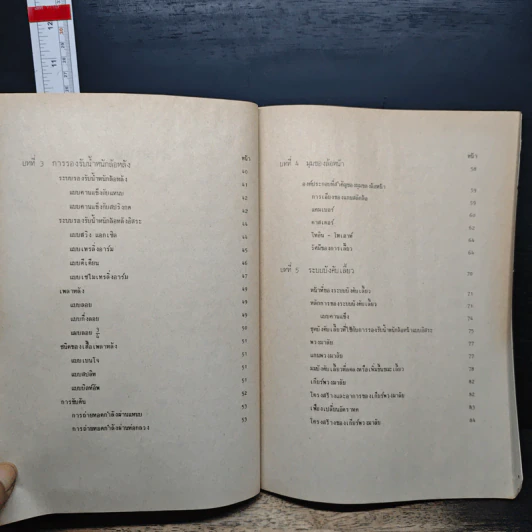 หน้า
บทที่ 3 การรองรับน้ำหนักล้อหลัง 40
ระบบรองรับน้ำหนักล้อหลัง 41
แบบคานแข็งกับแหนบ 42
แบบคานแข็งกับสปริงขด 43
ระบบรองรับน้ำหนักล้อหลังอิสระ 44
แบบสวิง แอกเซิล 44
แบบเทรลิ่งอาร์ม 46
แบบดีเดียน 47
แบบเซมิเทรลิ่งอาร์ม 48
เพลาหลัง
แบบลอย
แบบกึ่งลอย
แบบลอย 3/4
ชนิดของเสื้อเพลาหลัง
แบบแบนโจ
แบบสปลิต 52
แบบบิลท์อัพ
การขับดัน 52
การถ่ายทอดกำลังผ่านแหนบ 53
การถ่ายทอดกำลังผ่านท่อกลวง 53
หน้า
บทที่ 4 มุมของล้อหน้า 58
องค์ประกอบที่สำคัญของมุมของล้อหน้า 59
การเอียงของแกนสลักล้อ 59
แคมเบอร์
คาสเตอร์
โทอิน - โทเอาท์ 66
รัศมีของการเลี้ยว 68
บทที่ 5 ระบบบังคับเลี้ยว 70
หน้าที่ของระบบบังคับเลี้ยว 71
หลักการของระบบบังคับเลี้ยว
แบบคานแข็ง 74
ชุดบังคับเลี้ยวที่ใช้กับการรองรับน้ำหนักล้อหน้าแบบอิสระ 75
พวงมาลัย 75
แกนพวงมาลัย 76
เกียร์พวงมาลัย 77
โครงสร้างและอาการของเกียร์พวงมาลัย
เฟืองเปลี่ยนอัตราทด 83
โครงสร้างของเกียร์พวงมาลัย